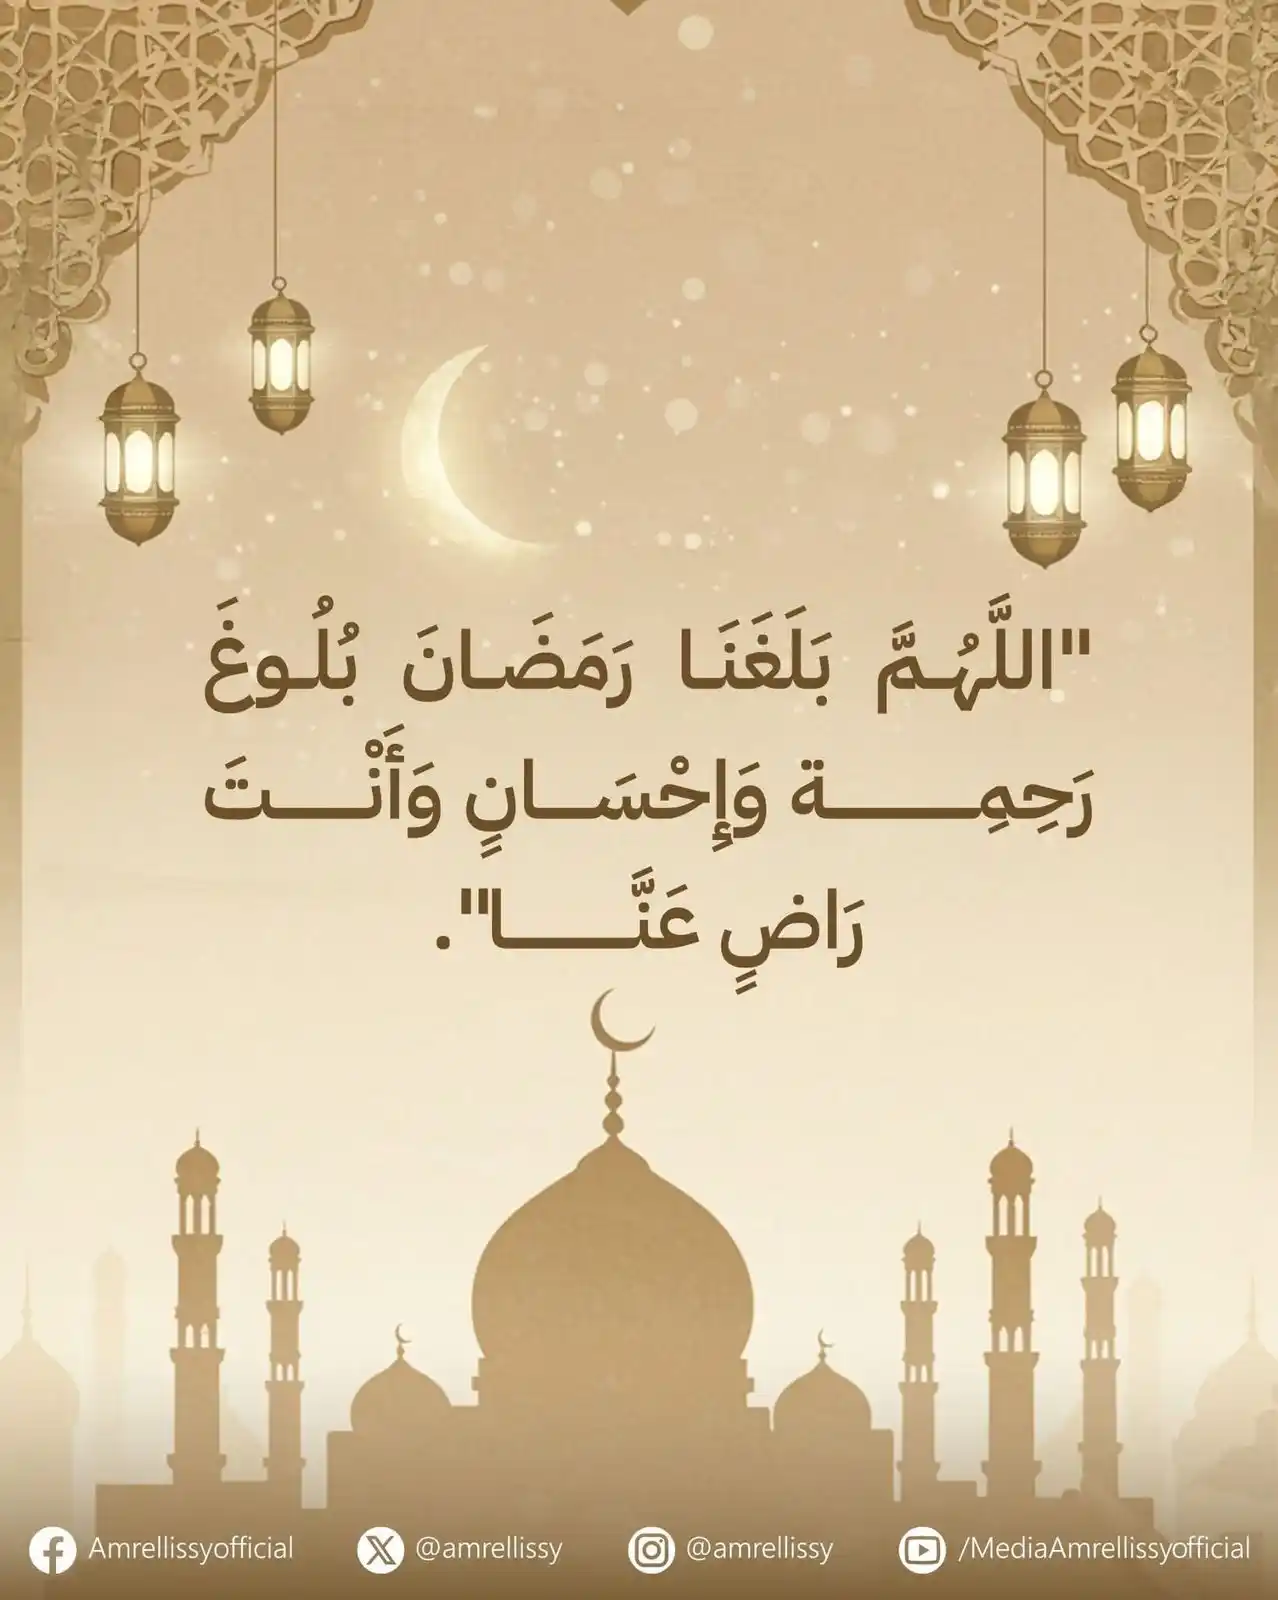 "اللَّهُمَّ بَلَغَنَا رَمَضَانَ بُلُوغَ
رَحِمِة وَإِحْسَانٍ وَأَنْتَ
رَاضٍ عَنَّا".
Amrellissyofficial
@amrellissy
@amrellissy
/MediaAmrellissyofficial